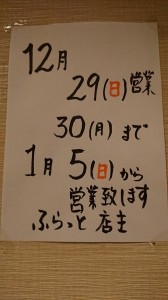 12月
29(日)営業
30(月)まで
1月 5(日)から
営業致します
ふらっと 店主